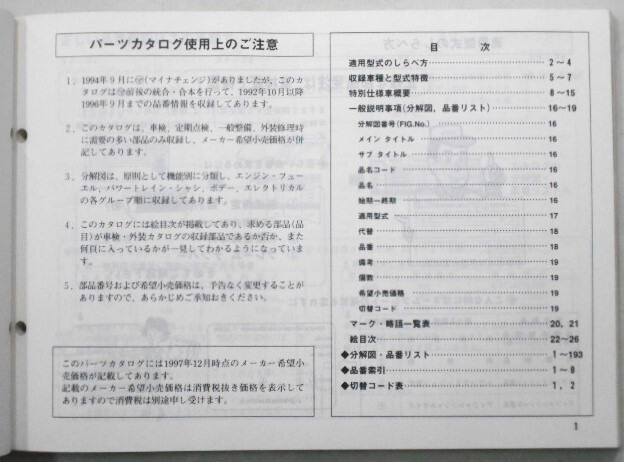 パーツカタログ使用上のご注意
1. 1994年9月に㋮(マイナチェンジ)がありましたが、このカ
タログは㋮前後の統合・合本を行って、1992年10月以降
1996年9月までの品番情報を収録してあります。
2. このカタログは、車検、定期点検、一般整備、外装修理時
に需要の多い部品のみ収録し、メーカー希望小売価格が併
記してあります。
3. 分解図は、原則として機能別に分類し、エンジン・フュー
エル、パワートレイン・シャシ、ボデー、エレクトリカル
の各グループ順に収録してあります。
4. このカタログには絵目次が掲載してあり、求める部品(品
目)が車検・外装カタログの収録部品であるか否か、また
何頁に入っているかが一見してわかるようになっていま
す。
5. 部品番号および希望小売価格は、予告なく変更することが
ありますので、あらかじめご承知おきください。
このパーツカタログには1997年12月時点のメーカー希望小
売価格が記載してあります。
記載のメーカー希望小売価格は消費税抜き価格を表示して
ありますので消費税は別途申し受けます。
目 次
適用型式のしらべ方 2～4
収録車種と型式特徴 5～7
特別仕様車概要 8～15
一般説明事項(分解図、品番リスト) 16～19
分解図番号(FIG.No.) 16
メイン タイトル 16
サブ タイトル 16
品名コード 16
品名 16
始期ー終期 16
適用型式 17
代替 18
品番 18
備考 19
個数 19
希望小売価格 19
切替コード 19
マーク・略語一覧表 20, 21
絵目次 22～26
◆分解図・品番リスト 1～193
◆品番索引 1～9
◆切替コード表 1, 2
1